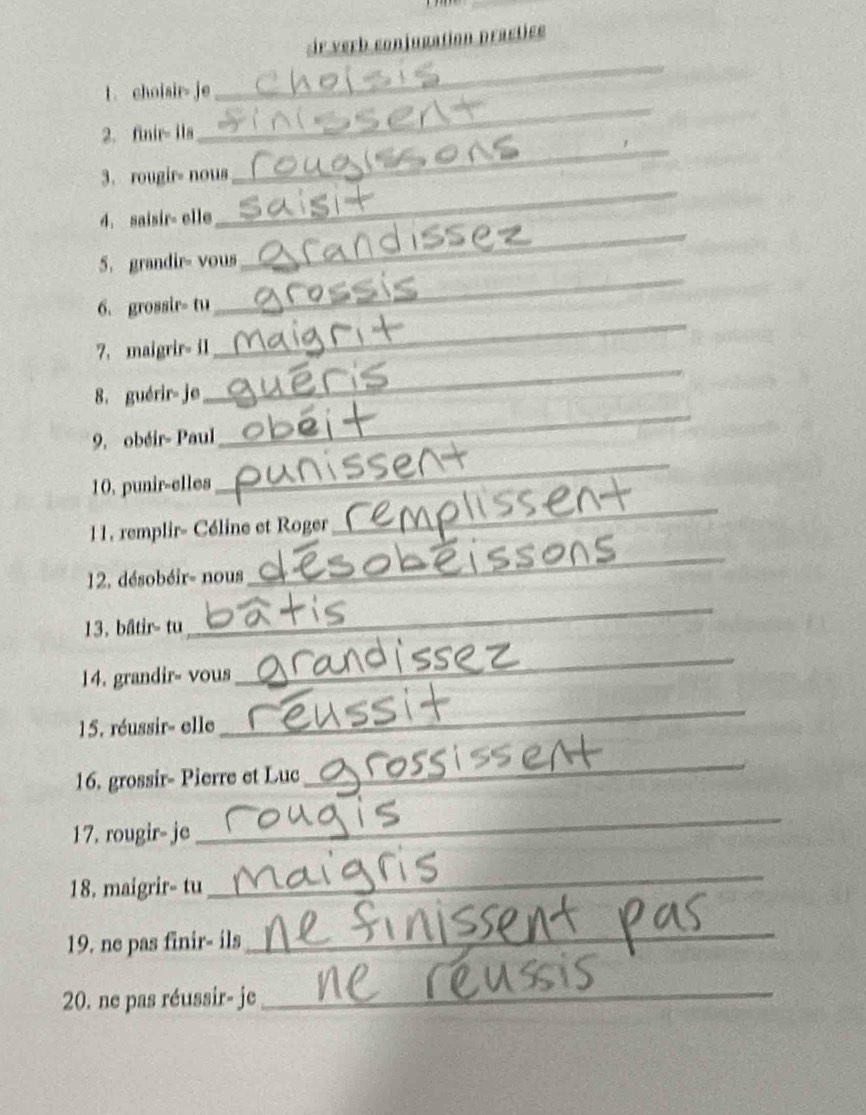 ir verb conjugation practice
1. choisir- je choisis
2. finir- ils finissent
3. rougir- nous rougissons
4. saisir- elle saisit
5. grandir- vous grandissez
6. grossir- tu grossis
7. maigrir- il maigrit
8. guérir- je guéris
9. obéir- Paul obéit
10. punir-elles punissent
11. remplir- Céline et Roger remplissent
12. désobéir- nous désobéissons
13. bâtir- tu bâtis
14. grandir- vous grandissez
15. réussir- elle réussit
16. grossir- Pierre et Luc grossissent
17. rougir- je rougis
18. maigrir- tu maigris
19. ne pas finir- ils ne finissent pas
20. ne pas réussir- je ne réussis